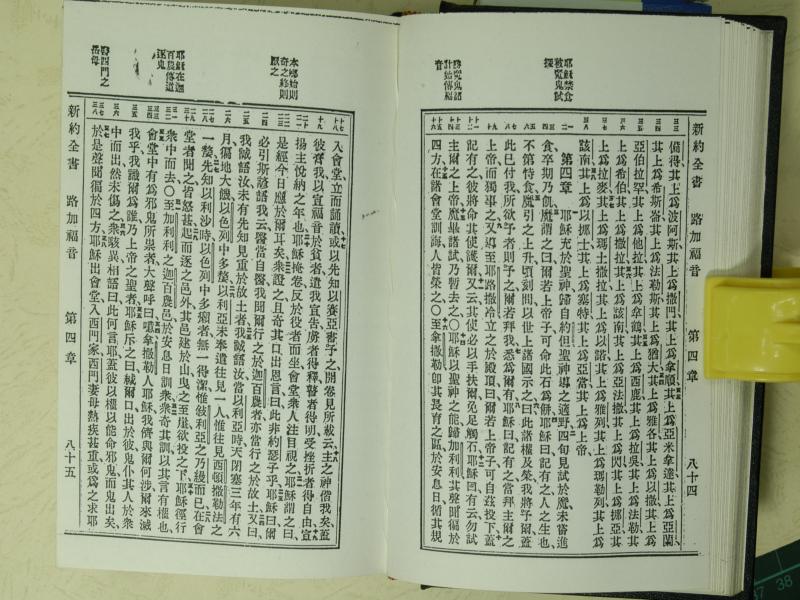 新約全書 路加福音 第四章 八十四
耶穌禁食
被魔鬼試
探
勝魔鬼諸
計始傳福
音
備得其上爲波阿斯其上爲撒門其上爲拿順其上爲亞米拿達其上爲亞蘭
其上爲希斯崙其上爲法勒斯其上爲猶大其上爲雅各其上爲以撒其上爲
亞伯拉罕其上爲他拉其上爲拿鶴其上爲西鹿其上爲拉吳其上爲法勒其
上爲希伯其上爲撒拉其上爲該南其上爲亞法撒其上爲閃其上爲挪亞其
上爲拉麥其上爲瑪土撒拉其上爲以諾其上爲雅列其上爲瑪勒列其上爲
該南其上爲以挪士其上爲塞特其上爲亞當其上爲上帝
第四章 耶穌充於聖神歸自約但聖神導之適野四旬見試於魔未嘗進
食卒期乃飢魔謂之曰爾若上帝子可命此石爲餅耶穌曰記有之人之生也
不第恃食魔引之上升頃刻間以世上諸國示之曰此諸權及榮我將予爾蓋
此已付我所欲予者則予之爾若拜我悉爲爾有耶穌曰記有之當拜主爾之
上帝而獨事之又導至耶路撒冷立之於殿頂曰爾若上帝子可自茲投下蓋
記有之彼將命其使護爾又云其使必以手扶爾免足觸石耶穌曰有云勿試
主爾之上帝魔畢諸試乃暫去之〇耶穌以聖神之能歸加利利其聲聞徧於
四方在諸會堂訓誨人皆榮之〇至拿撒勒卽其長育之區於安息日循其規
本鄉始則
奇之終則
厭之
耶穌在迦
百農傳道
逐鬼
醫西門之
岳母
入會堂立而誦讀或以先知以賽亞書予之開卷見所載云主之神偕我矣蓋
彼膏我以宣福音於貧者遣我宣告虜者得釋瞽者得明受挫折者得自由宣
揚主悅納之年也耶穌掩卷反於役者而坐會堂衆人注目視之耶穌謂之曰
是經今日應於爾耳矣衆證之且奇其口出恩言曰此非約瑟子乎耶穌曰爾
必引斯諺語我云醫當自醫我聞爾行之於迦百農者亦當行之於故土又曰
我誠語汝未有先知見重於故土者我誠語汝當以利亞時天閉塞三年有六
月徧地大饑以色列中多嫠以利亞未奉遣往見一人惟往見西頓撒勒法之
一嫠先知以利沙時以色列中多癩者無一得潔惟敍利亞之乃縵而已在會
堂者聞之皆怒甚起而逐之邑外其邑建於山曳之至崖欲投之下耶穌徑行
衆中而去〇至加利利之迦百農邑於安息日訓衆衆奇其訓以其言有權也
會堂中有爲邪鬼所祟者大聲呼曰噫拿撒勒人耶穌我儕與爾何涉爾來滅
我乎我識爾爲誰乃上帝之聖者耶穌斥之曰緘爾口出於彼鬼仆其人於衆
中而出然未傷之衆駭異相語曰此何言耶蓋彼以權以能命邪鬼而鬼出矣
於是聲聞徧於四方耶穌出會堂入西門家西門妻母熱疾甚重或爲之求耶
新約全書 路加福音 第四章 八十五
37 38